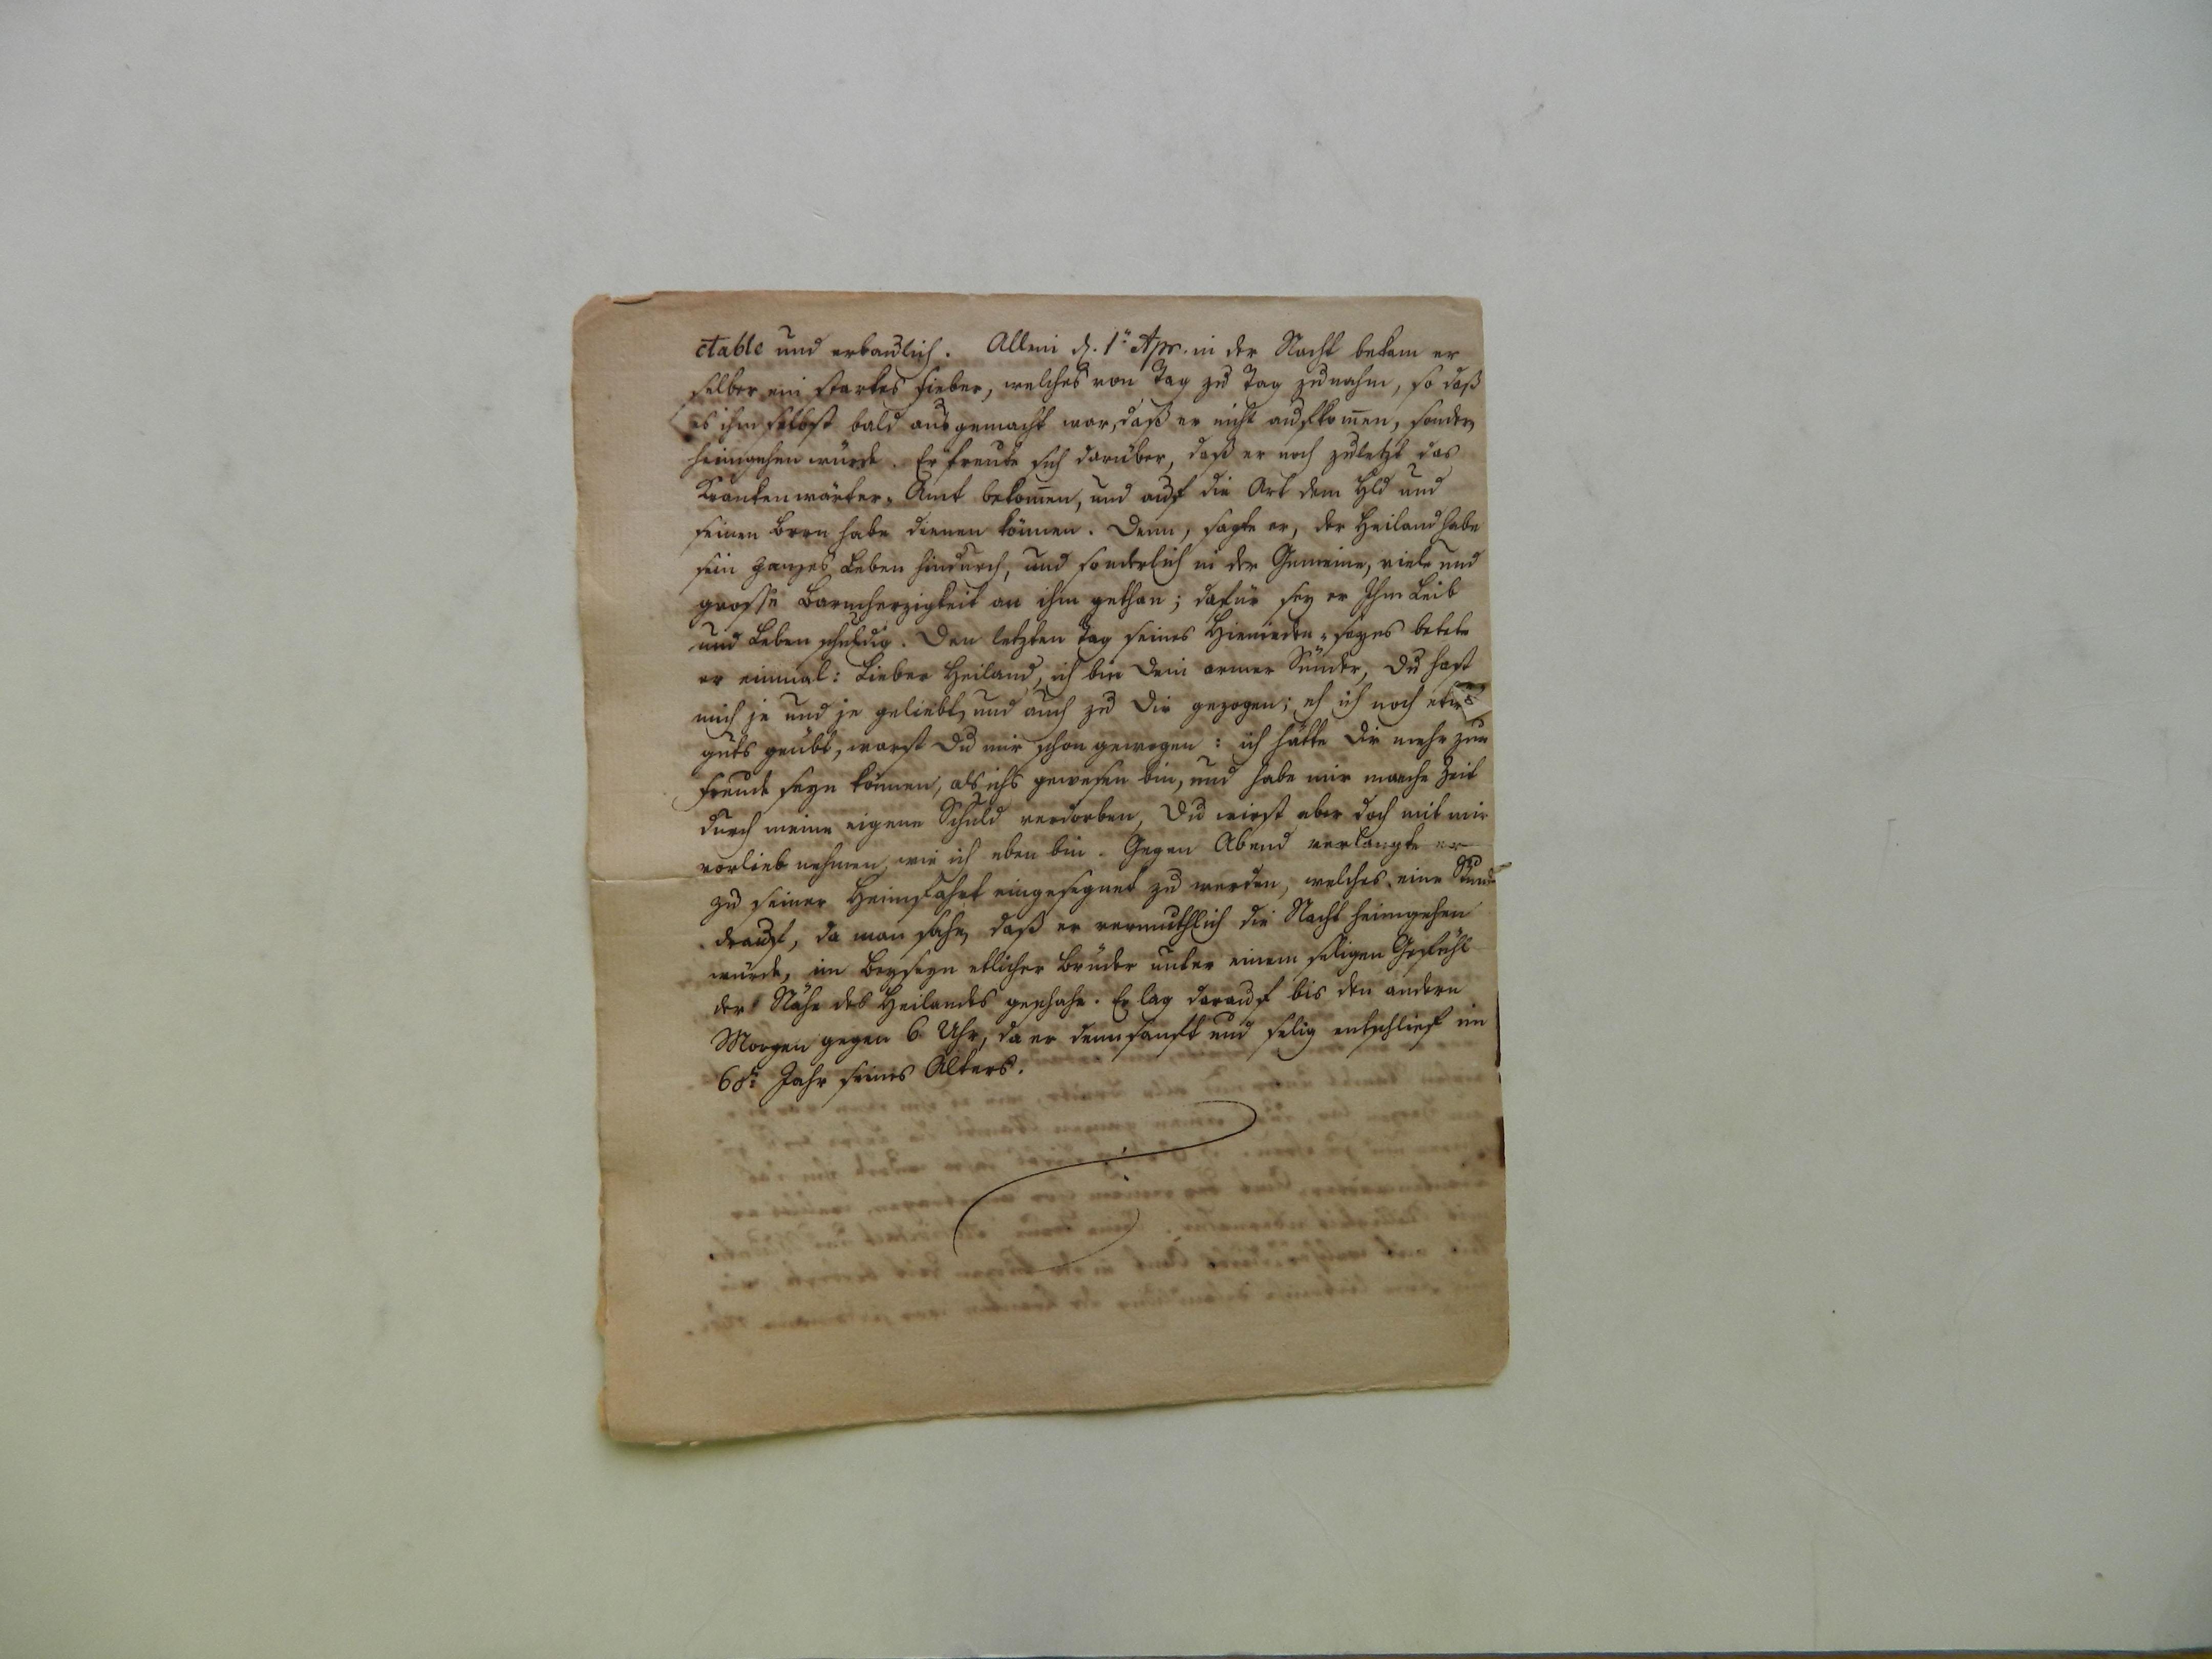 ctable und erbaulich. Allein d. 1ten Apr. in der Nacht bekam er
selber ein starkes Fieber, welches von Tag zu Tag zunahm, so daß
es ihm selbst bald ausgemacht war, daß er nicht aufkom̅en, sondern
heimgehen würde. Er freute sich darüber, daß er noch zuletzt das
Krankenwärter-Amt bekom̅en, und auf die Art dem Hld und
seinen Brrn habe dienen können. Denn, sagte er, der Heiland habe
sein ganzes Leben hindurch, und sonderlich in der Gemeine, viele und
grosse Barmherzigkeit an ihm gethan; dafür sey er Ihm Leib
und Leben schuldig. Den letzten Tag seines Hienieden-seyns betete
er einmal: Lieber Heiland, ich bin Dein armer Sünder, Du hast
mich je und je geliebt, und auch zu Dir gezogen; eh ich noch etws
guts geübt, warst Du mir schon gewogen: ich hätte Dir mehr zur
Freude seyn können, als ichs gewesen bin, und habe mir manche Zeit
durch meine eigene Schuld verdorben, Du wirst aber doch mit mir
vorlieb nehmen, wie ich eben bin. Gegen Abend verlangte er
zu seiner Heimfahrt eingesegnet zu werden, welches eine Stunde
drauf, da man sahe, daß er vermuthlich die Nacht heimgehen
würde, im Beyseyn etlicher Brüder unter einem seligen Gefühl
der Nähe des Heilandes geschahe. Er lag darauf bis den andern
Morgen gegen 6 Uhr, da er denn sanft und selig entschlief im
68n Jahr seines Alters.